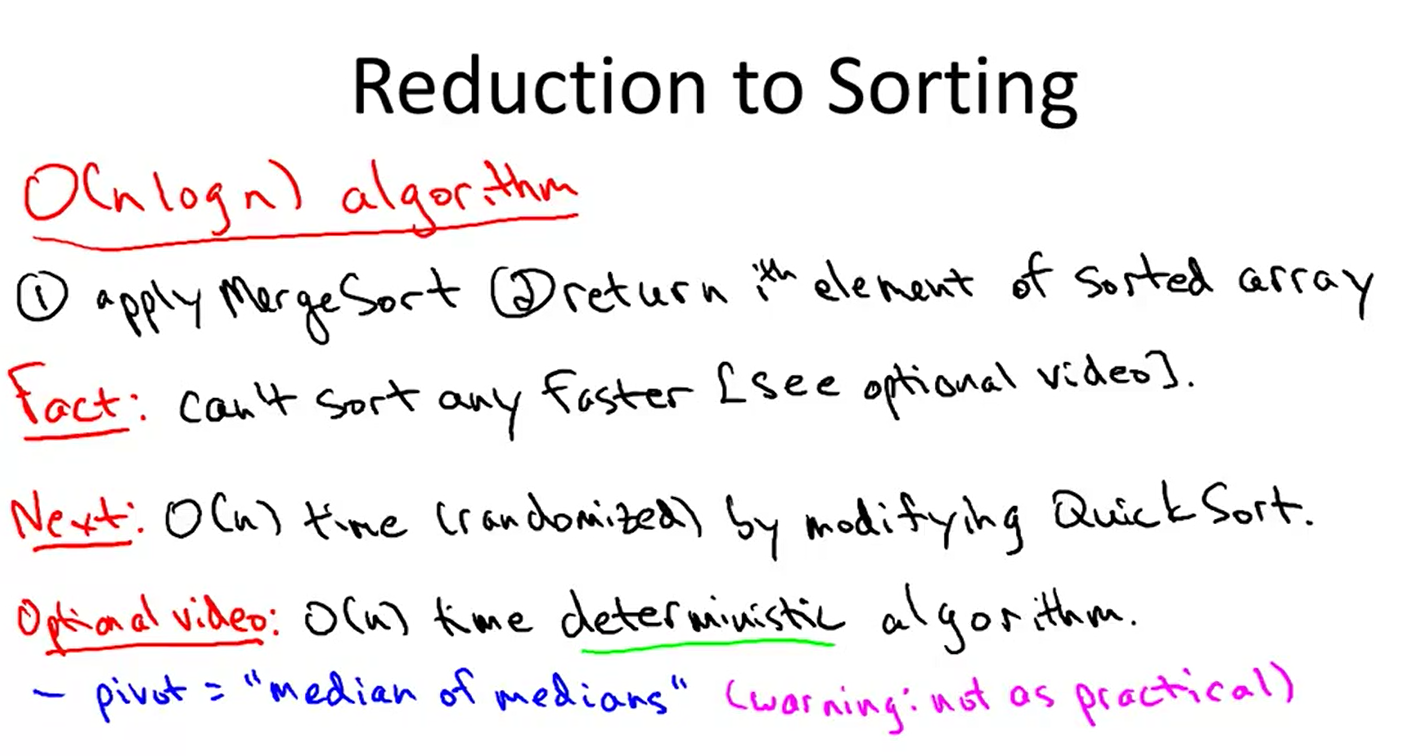 Reduction to Sorting
O(n log n) algorithm
① apply MergeSort ② return ith element of sorted array
Fact: can't sort any faster [see optional video].
Next: O(n) time (randomized) by modifying QuickSort.
Optional video: O(n) time deterministic algorithm.
- pivot = "median of medians" (warning: not as practical)